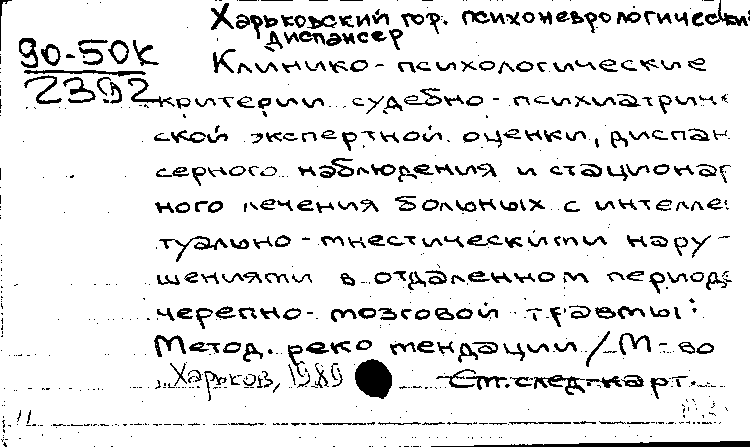 Харьковский гор. психоневрологический
диспансер
90-50К
2392
Клинико-психологические
критерии судебно-психиатриче
ской экспертной оценки, диспан
серного наблюдения и стационар
ного лечения больных с интеллек
туально-мнестическими нару-
шениями в отдаленном периоде
черепно-мозговой травмы:
Метод. рекомендации / М-во
Харьков, 1989
См. след. карт.